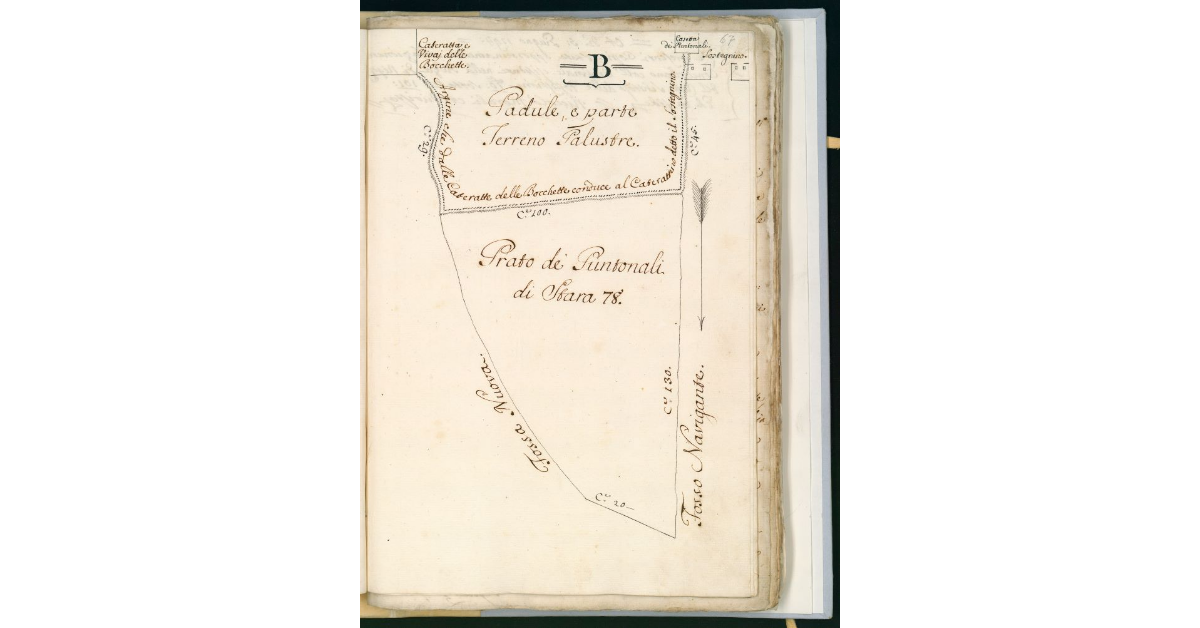 Cateratta e
Vivaj delle
Bocchette.
B
67
Casone
de Puntonali.
Sostegnino.
Padule, e parte
Terreno Palustre.
Argine che dalle Cateratte delle Bocchette conduce al Caterattino detto il Sostegnino
C.ᵉ 29.
C.ᵉ 45.
C.ᵉ 100.
Prato de Puntonali
di Stara 78.
Fossa Nuova.
C.ᵉ 130.
Fosso Navigante.
C.ᵉ 20